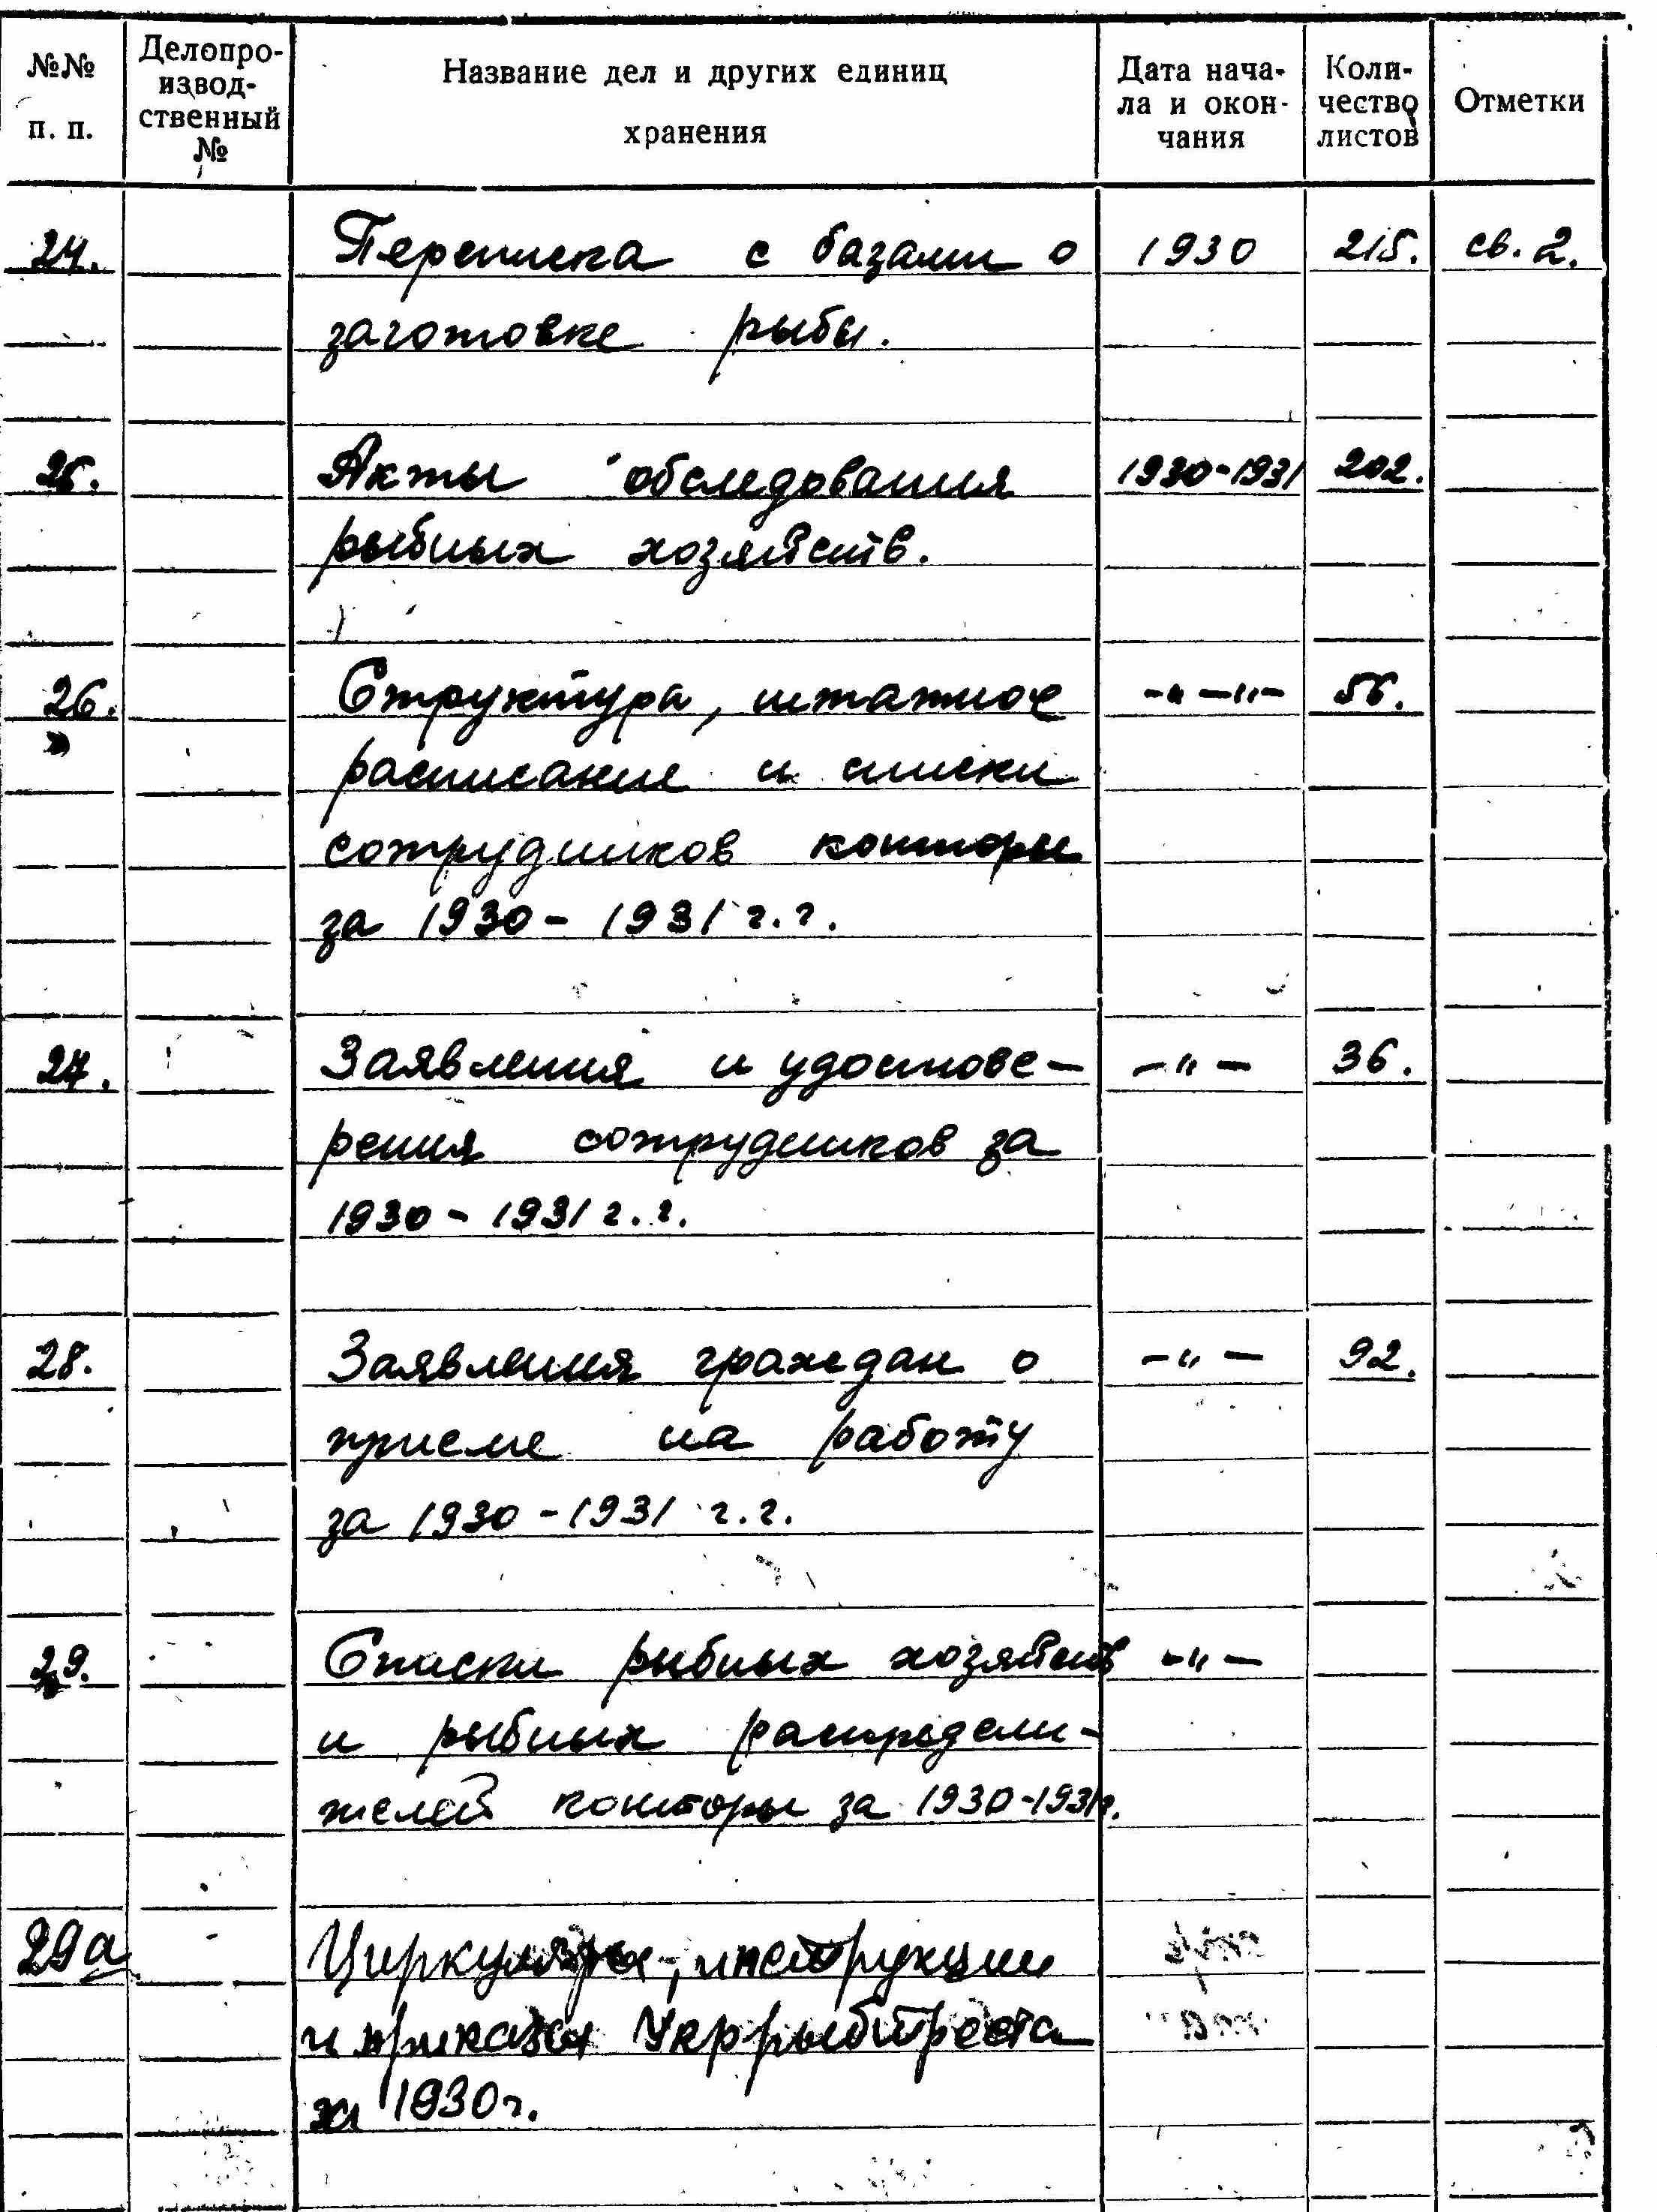 №№ п. п.
Делопро-
извод-
ственный
№
Название дел и других единиц
хранения
Дата нача-
ла и окон-
чания
Коли-
чество
листов
Отметки
24. Переписка с базами о 1930 215. св. 2.
заготовке рыбы.
25. Акты обследования 1930-1931 202.
рыбных хозяйств.
26. Структура, штатное -"-"- 56.
расписание и списки
сотрудников конторы
за 1930-1931 г.г.
27. Заявления и удостове- -"- 36.
рения сотрудников за
1930-1931 г.г.
28. Заявления граждан о -"- 92.
приеме на работу
за 1930-1931 г.г.
29. Списки рыбных хозяйств -"-
и рыбных распредели-
телей конторы за 1930-1931г.
29а Циркуляры, инструкции
и приказы Укррыбтреста
за 1930г.